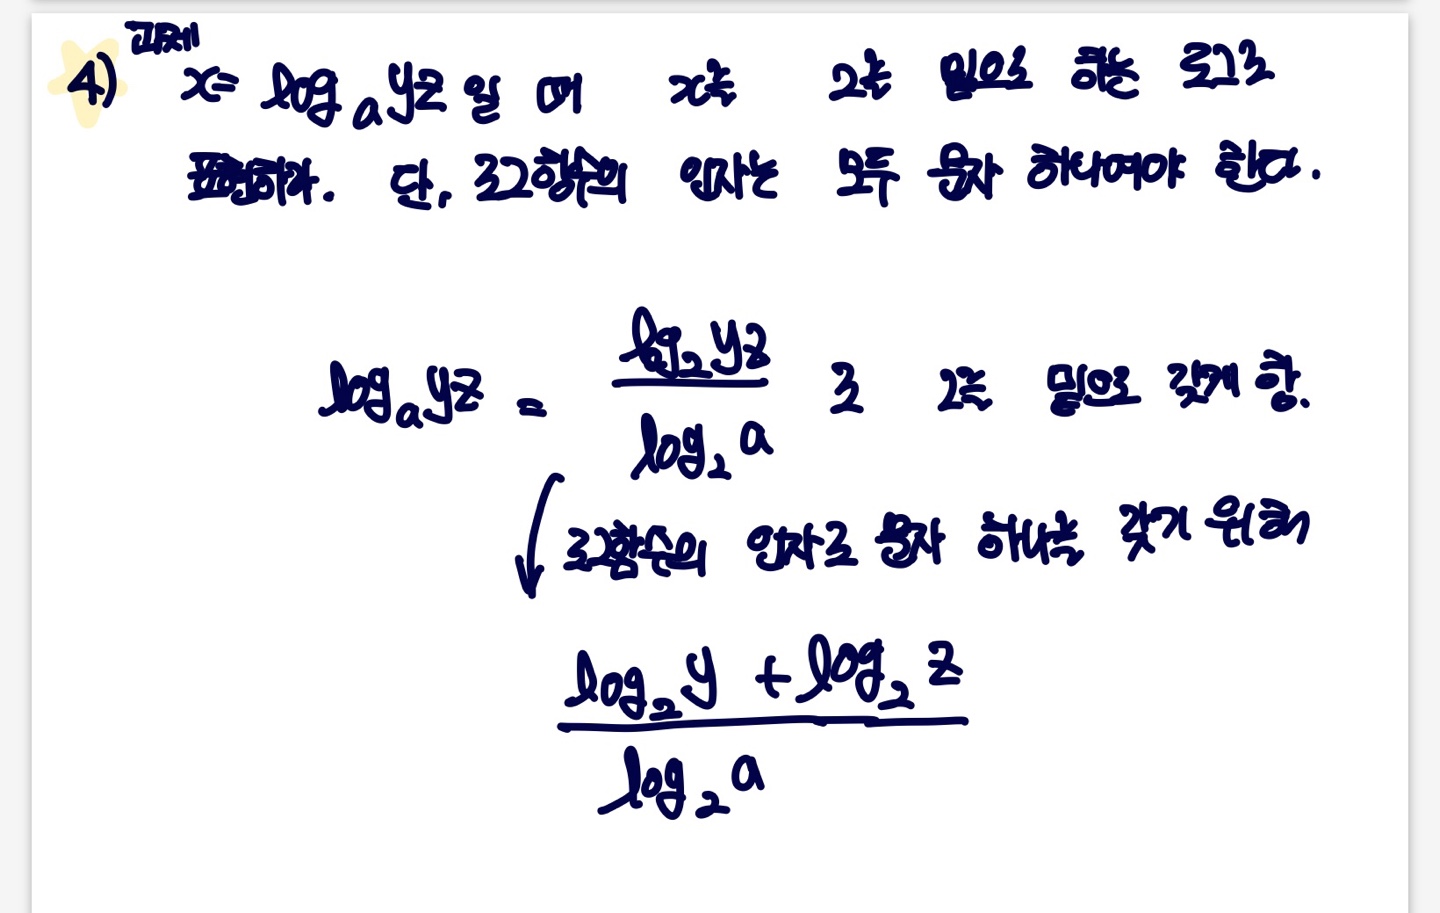 과제
4) x = log_a yz 일 때 x를 2를 밑으로 하는 로그로
표현하라. 단, 로그함수의 인자는 모두 문자 하나여야 한다.
log_a yz = \frac{log_2 yz}{log_2 a} 로 2를 밑으로 갖게 함.
로그함수의 인자로 문자 하나를 갖기 위해
\frac{log_2 y + log_2 z}{log_2 a}